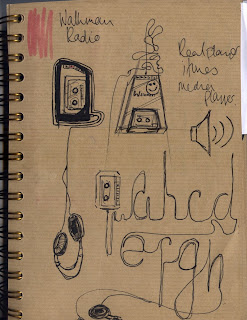 Walkman
Radio
Realplayer
itunes
media
player
abcd
efgh